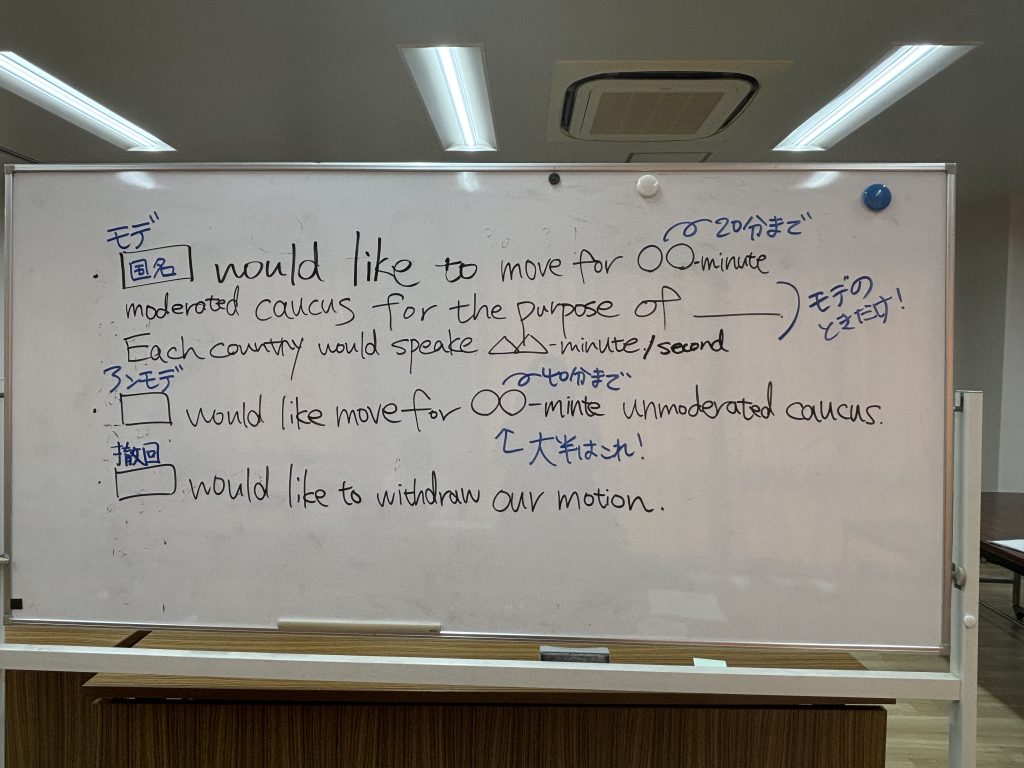 モデ
20分まで
・国名 would like to move for ○○-minute
moderated caucus for the purpose of ______.
モデの
ときだけ!
Each country would speake △△-minute/second
アンモデ
40分まで
・ would like move for ○○-minte unmoderated caucus.
撤回
↑大半はこれ!
・ would like to withdraw our motion.